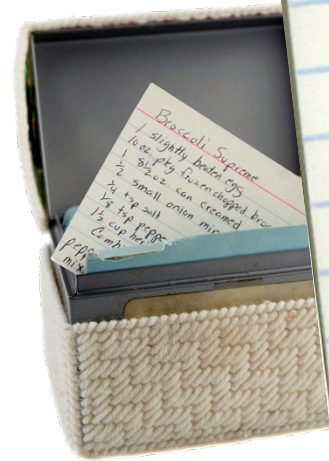 Broccoli Supreme
1 slightly beaten egg
10 oz pkg frozen chopped broc
1 8½ oz can creamed
½ small onion min
¼ tsp salt
⅛ tsp peppe
1½ cup her
Combi
pepp
mix